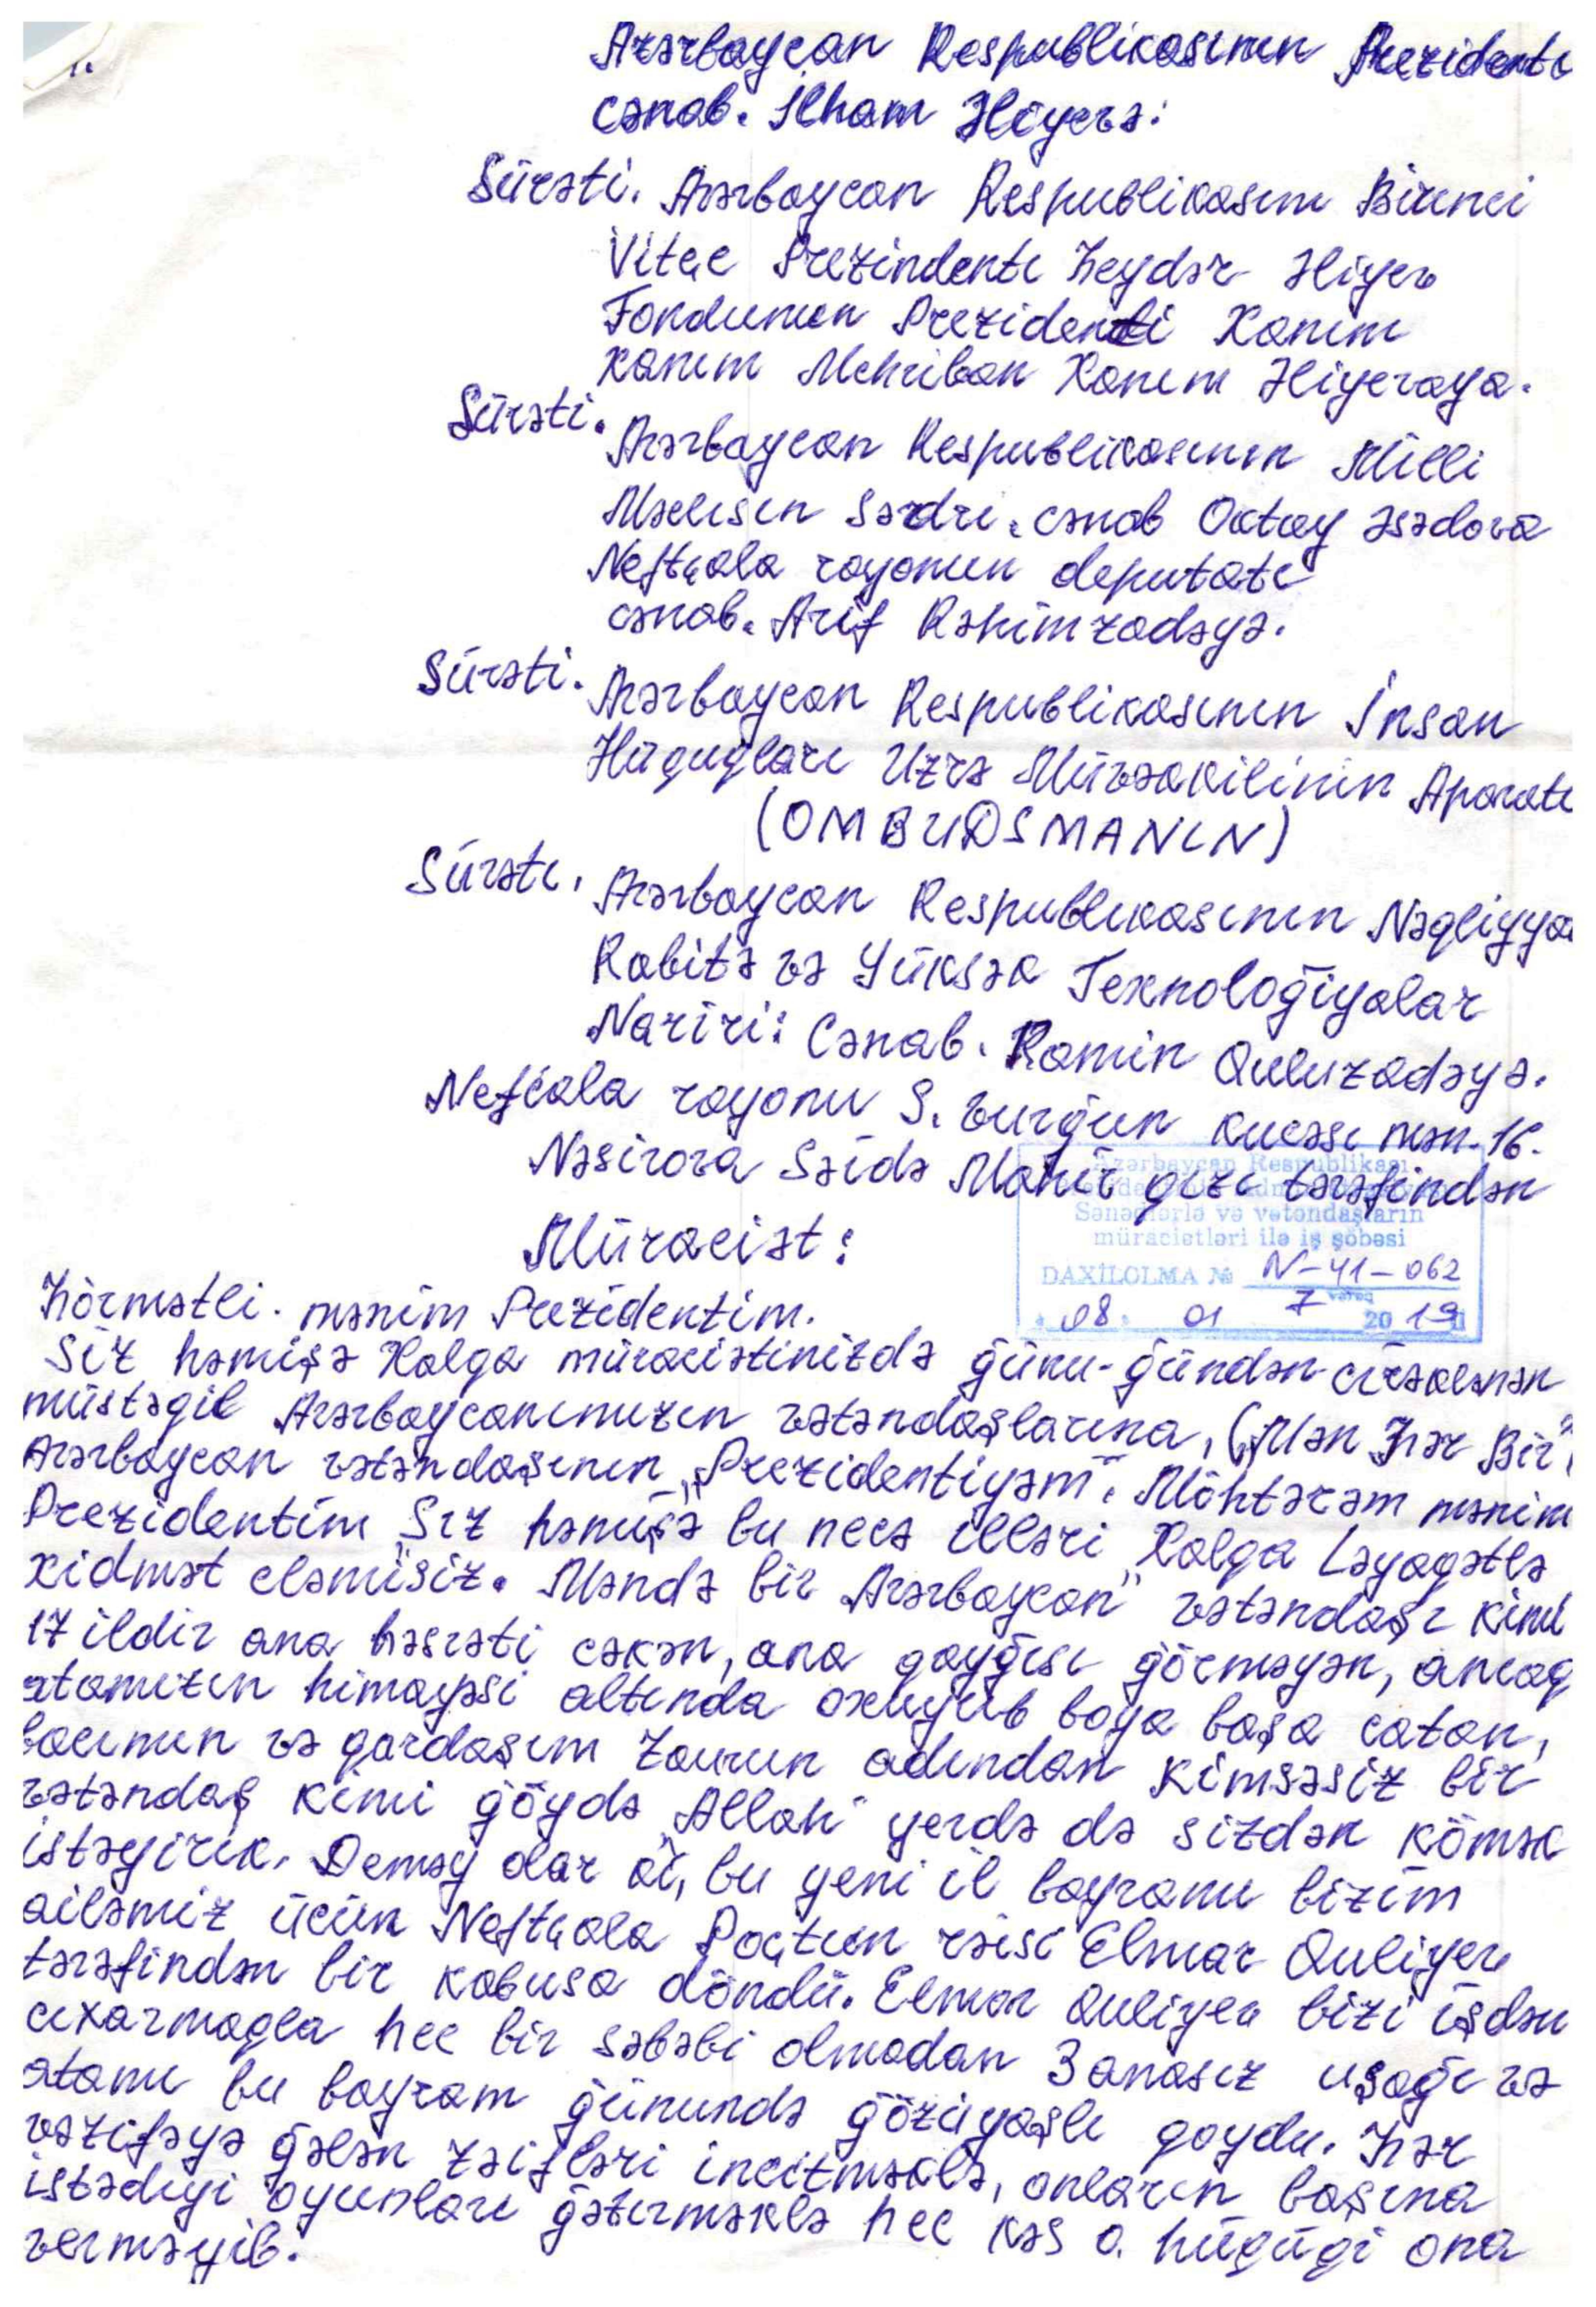 Azərbaycan Respublikasının Prezidenti
cənab. İlham Əliyevə:
Sürəti. Azərbaycan Respublikasını Birinci
Vitçe Prezindenti Heydər Əliyev
Fondunun Prezidenti Xanım
xanım Mehriban Xanım Əliyevaya.
Sürəti. Azərbaycan Respublikasının Milli
Məclisin Sədri. cənab Oktay Əsədova
Neftçala rayonun deputatı
cənab. Arif Rəhimzadəyə.
Sürəti. Azərbaycan Respublikasının İnsan
Hüquqları Uzrə Müvəkkilinin Aparatı
(OMBUDSMANIN)
Sürəti. Azərbaycan Respublikasının Nəqliyya
Rabitə və Yüksək Texnoloğiyalar
Naziri: Cənab. Ramin Quluzadəyə.
Nefcala rayonu S. vurğun kucəsi mən-16.
Nəsirova Səidə Mahir qızı tərəfindən
Azərbaycan Respublikası
Sənədlərlə və vətəndaşların
müraciətləri ilə iş şöbəsi
DAXİLOLMA № N-41-062
7 vərəq
08. 01 2019
Müraciət:
Hörmətli. mənim Prezidentim.
Siz həmişə Xalqa müraciətinizdə ğünu-ğündən cirəklənən
müstəqil Azərbaycanımızın vətəndaşlarına, (,,Mən Hər Bir"
Azərbaycan vətəndaşının ,,Prezidentiyəm". Möhtərəm mənim
Prezidentim Siz həmişə bu necə illəri Xalqa Ləyaqətlə
xidmət eləmisiz. Məndə bir ,,Azərbaycan" vətəndaşı kimi
17 ildir ana həsrəti cəkən, ana qayğısı ğörməyən, ancaq
atamızın himayəsi altında oxuyub boya başa catan,
bacımın və qardaşım Zaurun adından kimsəsiz bir
vətəndaş kimi ğöydə ,,Allah" yerdə də sizdən kömək
istəyirik. Deməy olar ki, bu yeni il bayramı bizim
ailəmiz ücün Neftçala Poçtun rəisi Elmar Quliyev
tərəfindən bir kabusa döndü. Elmar Quliyev bizi işdən
cıxarmaqla hec bir səbəbi olmadan 3 anasız uşağı və
atamı bu bayram ğünundə ğözüyaşlı qoydu. Hər
vəzifəyə ğələn zəifləri incitməklə, onların başına
istədiyi oyunları ğətirməklə hec kəs o. hüqüqi ona
verməyib.